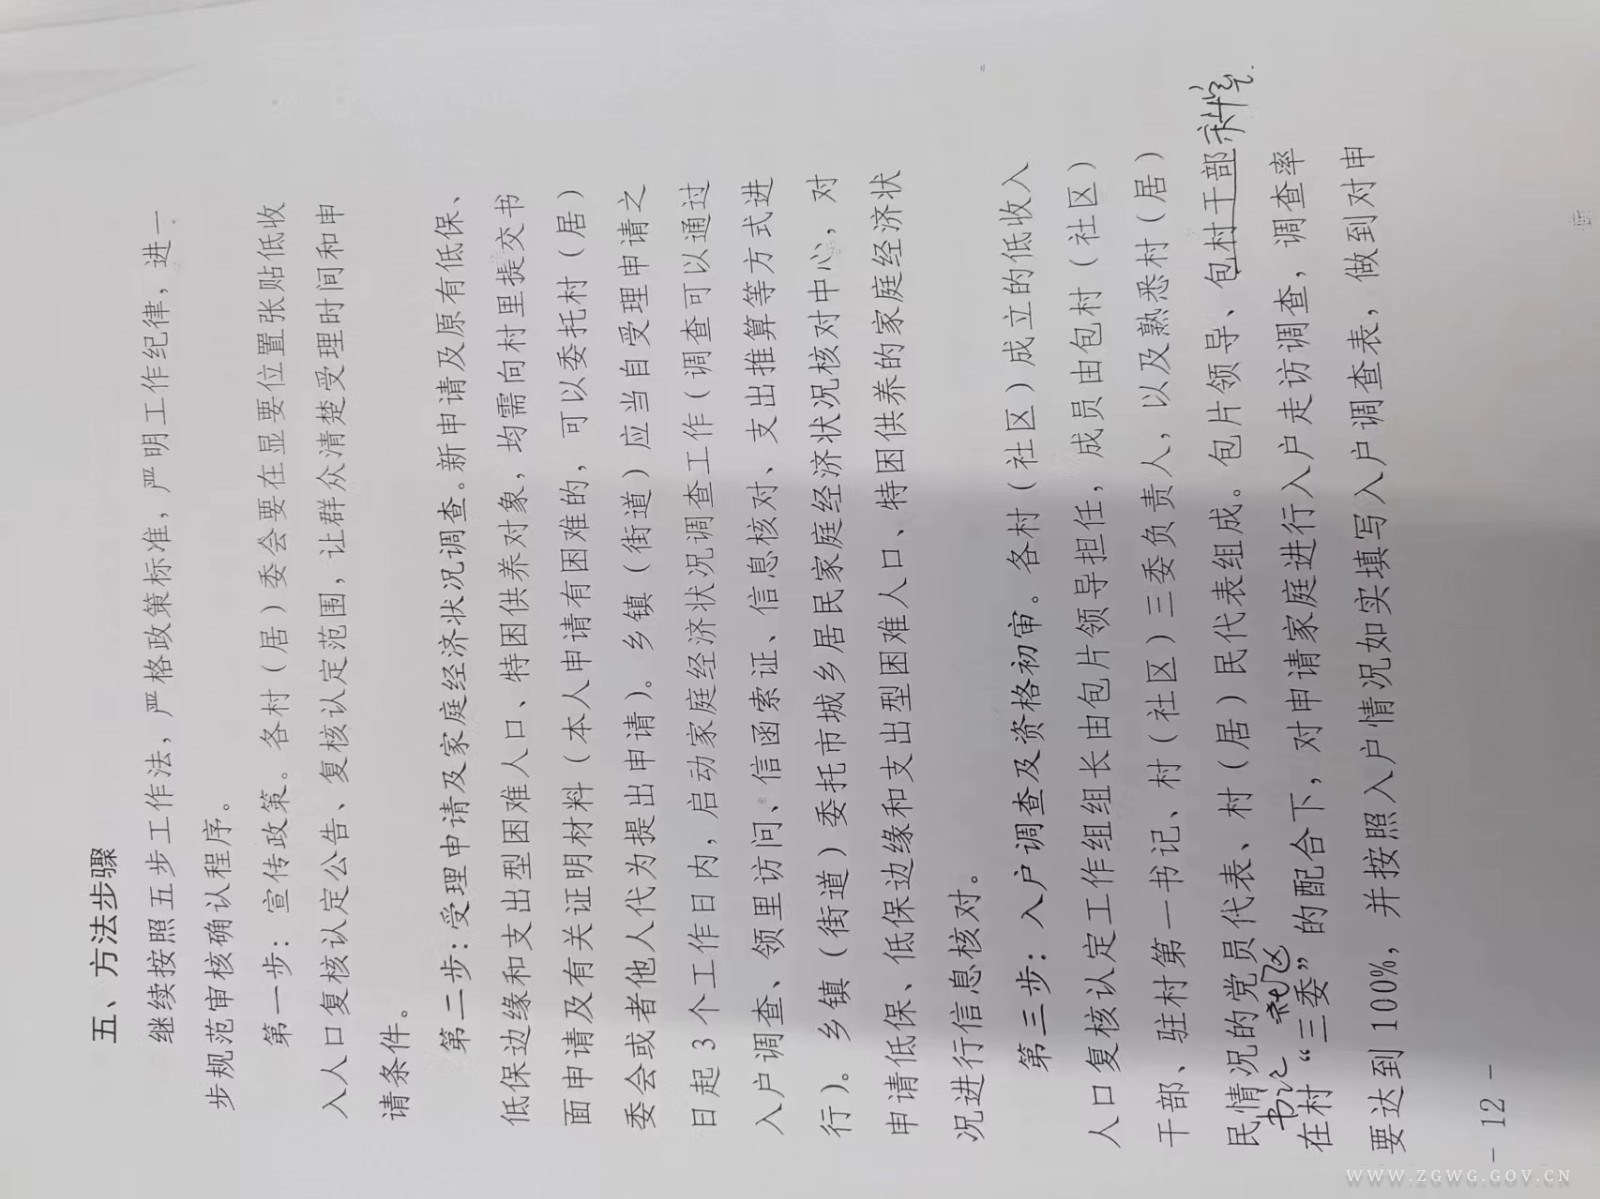 五、方法步骤
继续按照五步工作法，严格政策标准，严明工作纪律，进一
步规范审核确认程序。
第一步：宣传政策。各村（居）委会要在显要位置张贴低收
入人口复核认定公告、复核认定范围，让群众清楚受理时间和申
请条件。
第二步：受理申请及家庭经济状况调查。新申请及原有低保、
低保边缘和支出型困难人口、特困供养对象，均需向村里提交书
面申请及有关证明材料（本人申请有困难的，可以委托村（居）
委会或者他人代为提出申请）。乡镇（街道）应当自受理申请之
日起 3 个工作日内，启动家庭经济状况调查工作（调查可以通过
入户调查、领里访问、信函索证、信息核对、支出推算等方式进
行）。乡镇（街道）委托市城乡居民家庭经济状况核对中心，对
申请低保、低保边缘和支出型困难人口、特困供养的家庭经济状
况进行信息核对。
第三步：入户调查及资格初审。各村（社区）成立的低收入
人口复核认定工作组组长由包片领导担任，成员由包村（社区）
干部、驻村第一书记、村（社区）三委负责人，以及熟悉村（居）
民情况的党员代表、村（居）民代表组成。包片领导、包村干部
书记 社区
在村“三委”的配合下，对申请家庭进行入户走访调查，调查率
要达到 100%，并按照入户情况如实填写入户调查表，做到对申
- 12 -
WWW.ZGWG.GOV.CN